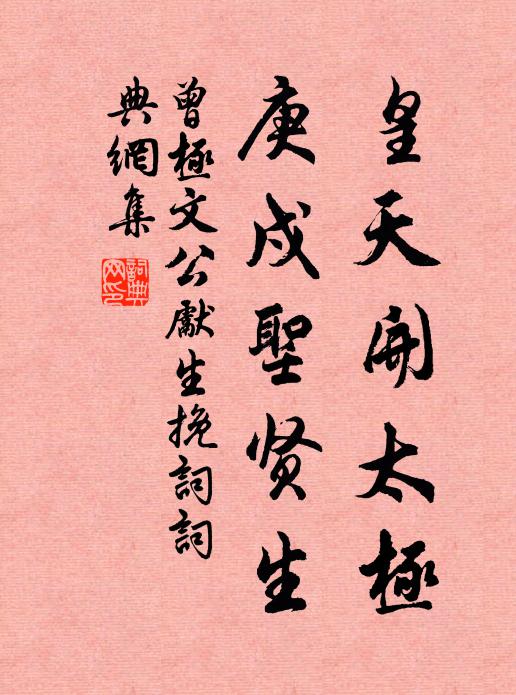 皇天開太極
庚戌聖贤生
曾極文公獻生挽詞詞
典網集
詞典
网印